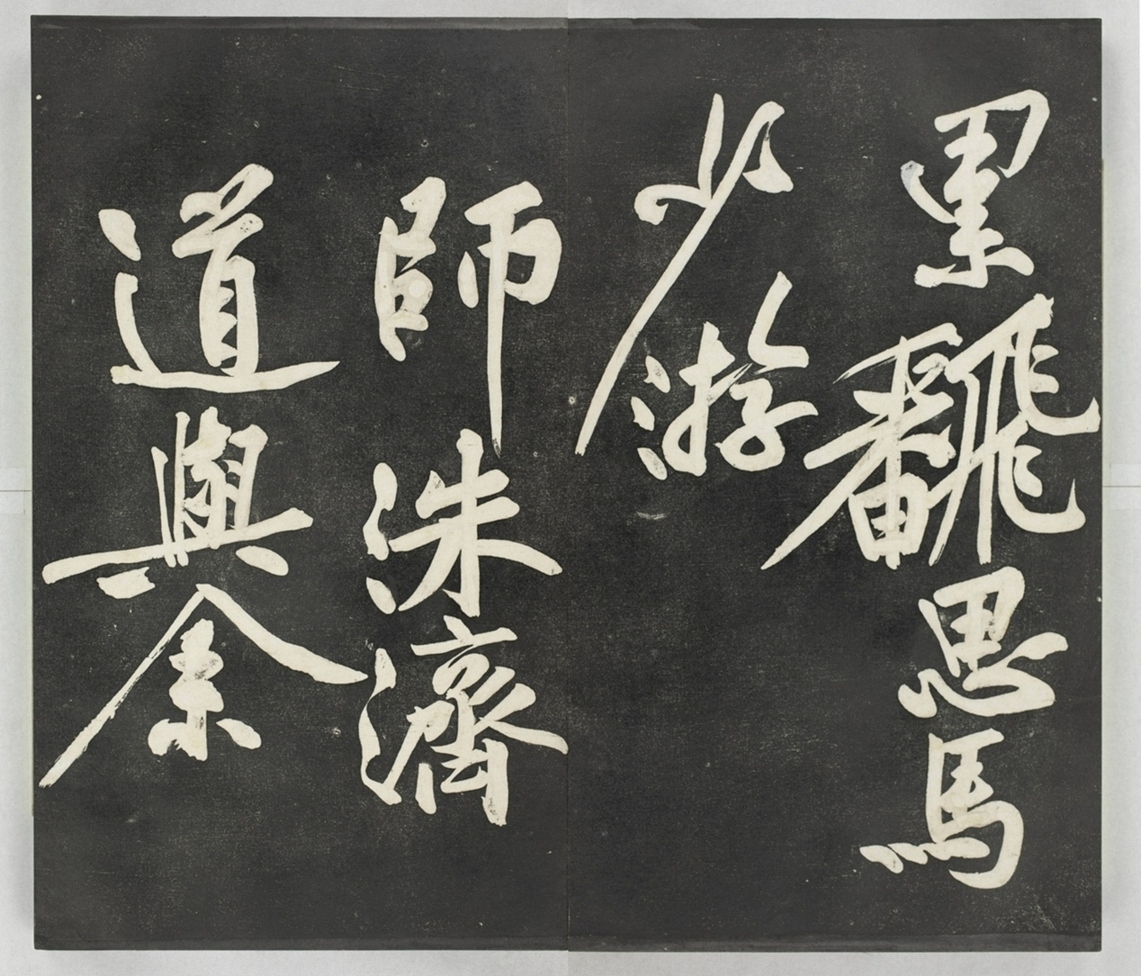 累飜思馬
少游
師洙濟
道與余